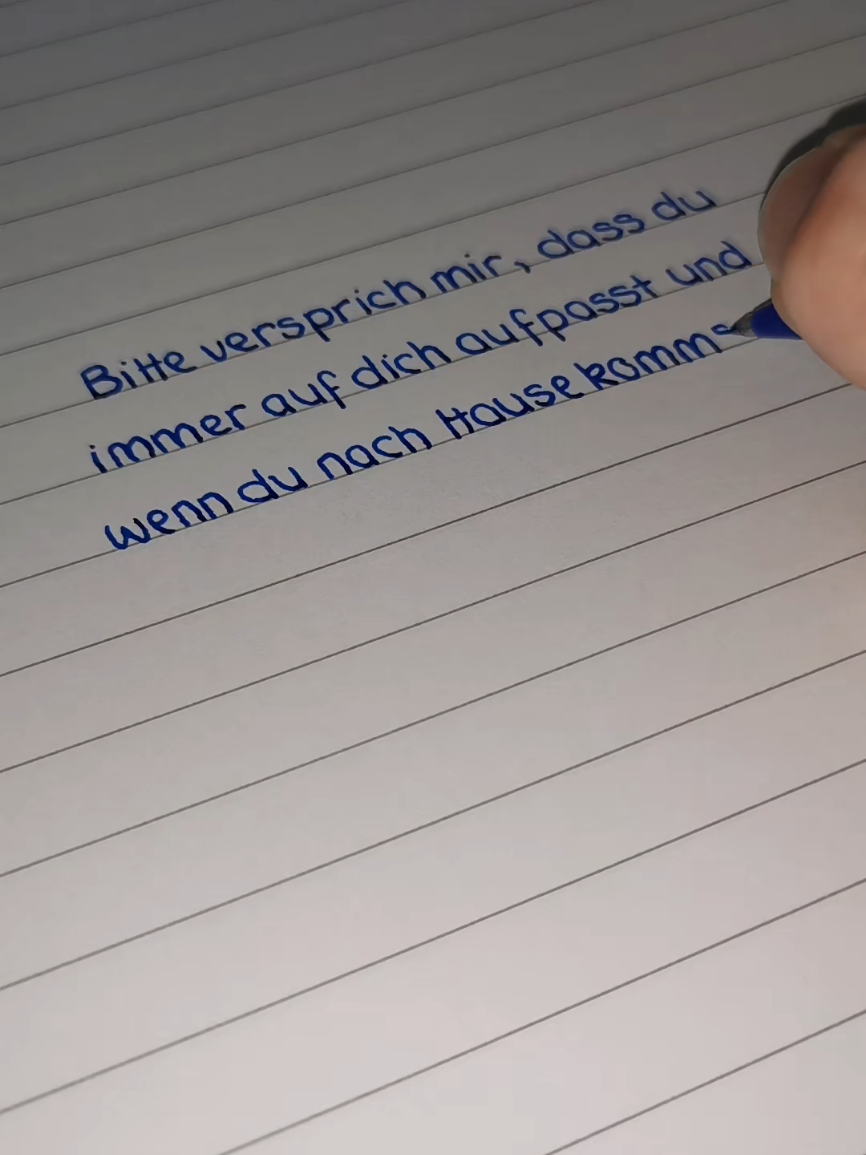 Bitte versprich mir, dass du
immer auf dich aufpasst und
wenn du nach Hause komms